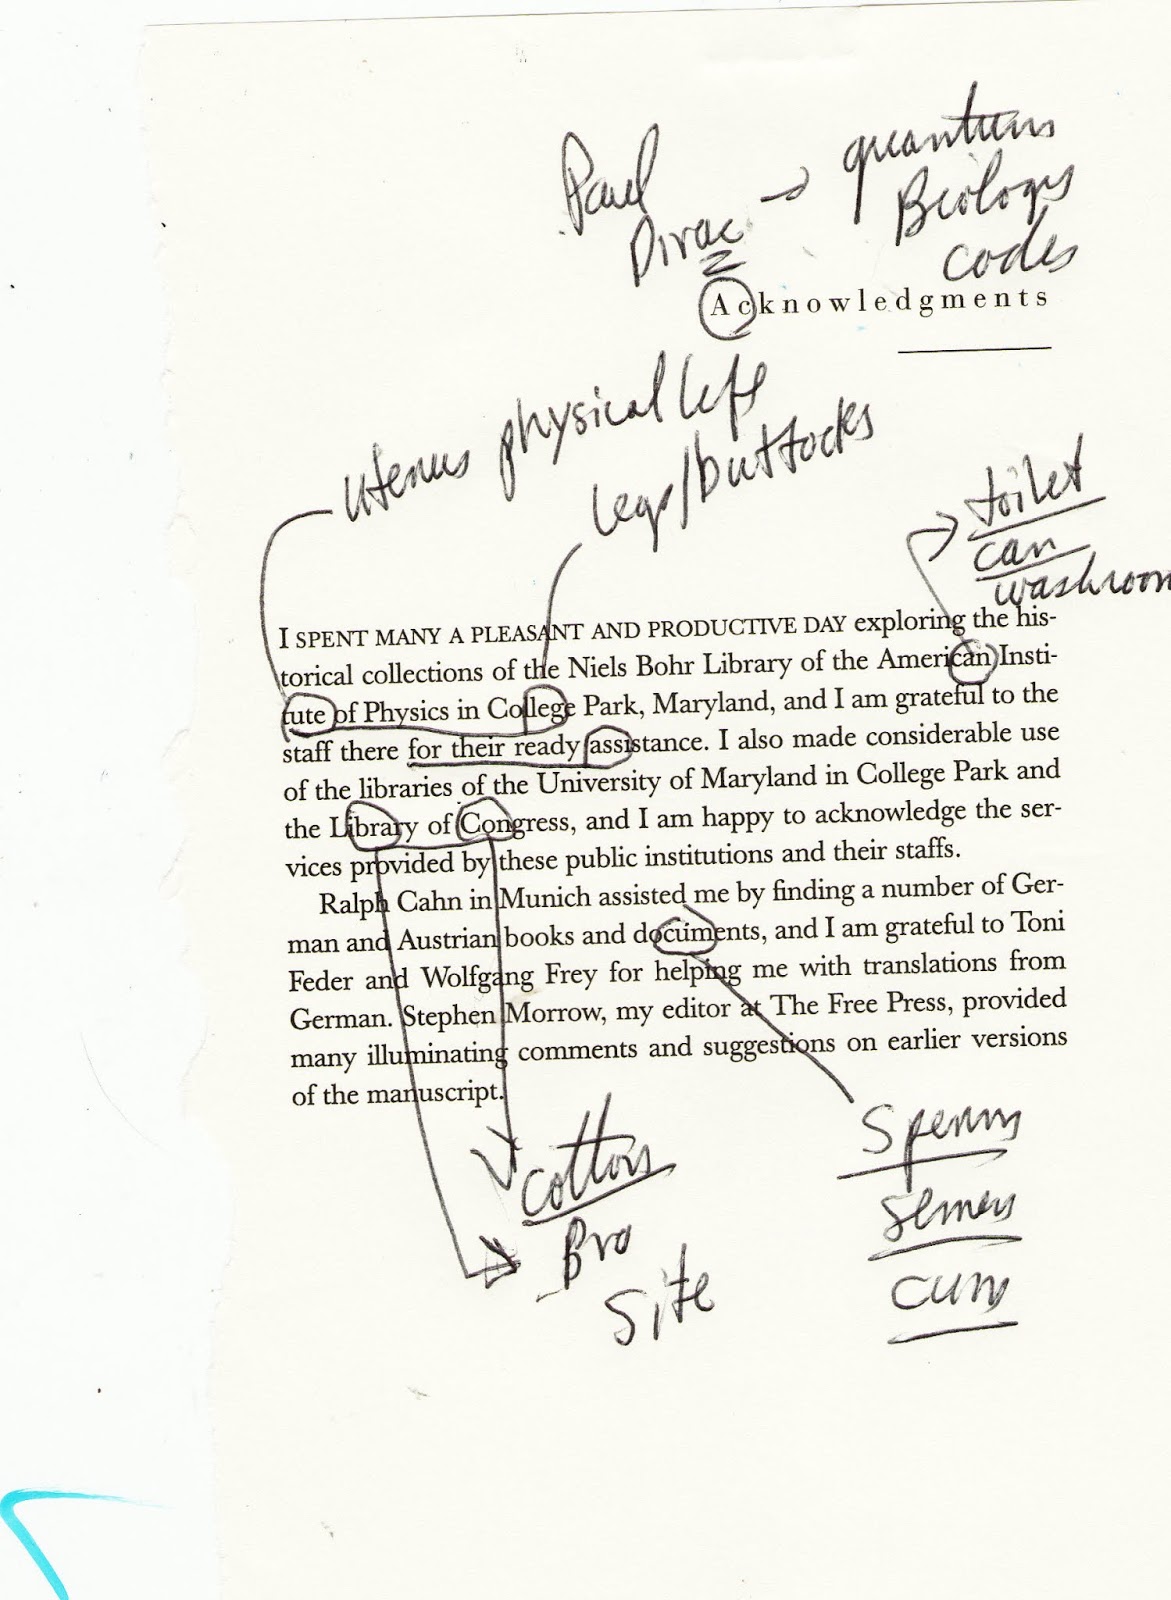 Paul → quantum
Dirac Biology
codes
Acknowledgments
uterus physical left
legs/buttocks
toilet
can
washroom
I SPENT MANY A PLEASANT AND PRODUCTIVE DAY exploring the his-
torical collections of the Niels Bohr Library of the American Insti-
tute of Physics in College Park, Maryland, and I am grateful to the
staff there for their ready assistance. I also made considerable use
of the libraries of the University of Maryland in College Park and
the Library of Congress, and I am happy to acknowledge the ser-
vices provided by these public institutions and their staffs.
Ralph Cahn in Munich assisted me by finding a number of Ger-
man and Austrian books and documents, and I am grateful to Toni
Feder and Wolfgang Frey for helping me with translations from
German. Stephen Morrow, my editor at The Free Press, provided
many illuminating comments and suggestions on earlier versions
of the manuscript.
cotton
Bra
Site
Sperm
semen
cum